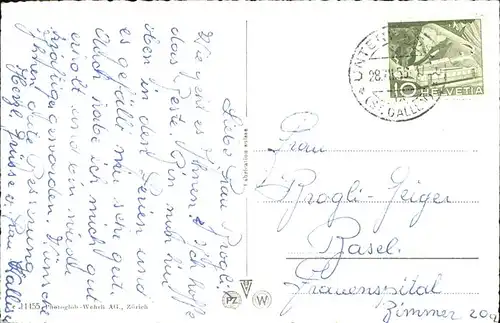 Liebe Frau Brogli.
Wie geht es Ihnen? Ich hoffe
das Beste. Bin nun hier
oben in den Ferien und
es gefällt mir sehr gut.
Auch habe ich mich gut
erholt und bin wieder
kräftiger geworden. Wünsche
Ihnen gute Besserung
Herzl. Grüsse
Frau
Frau
Brogli-Geiger
Basel.
Frauenspital
Zimmer 209
UNTER
28.
(ST. GALLEN)
10 HELVETIA
11455 Photoglob-Wehrli AG., Zürich
PZ W